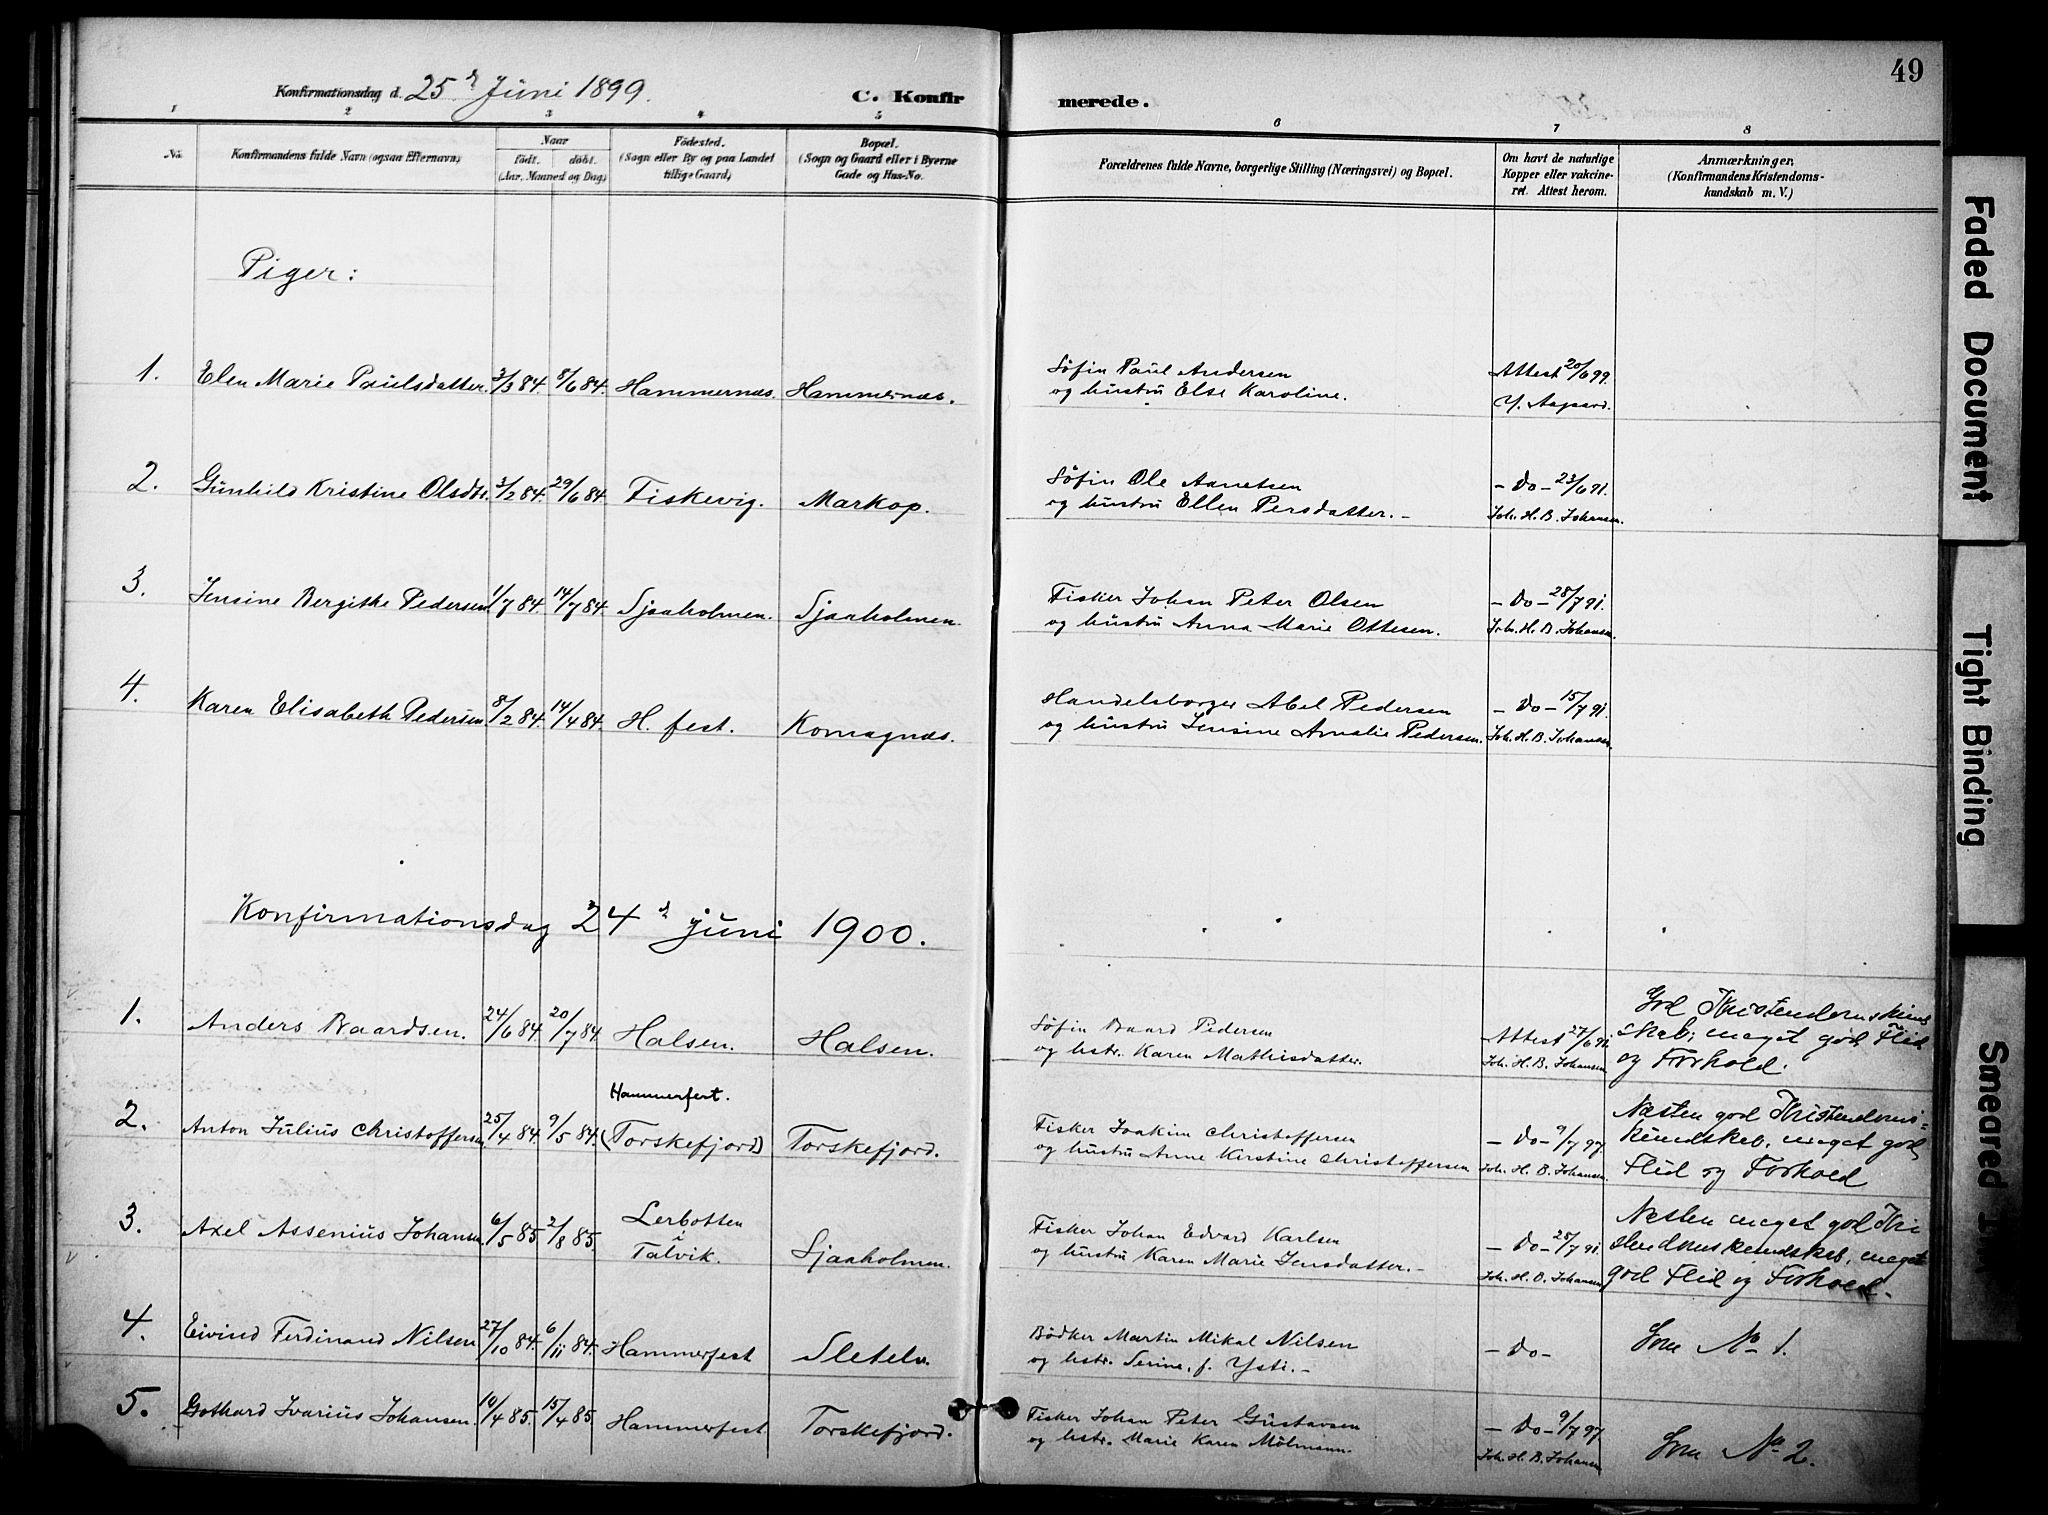 49
Konfirmationsdag d. 25de Juni 1899.
C. Konfirmerede.
1 2 3 4 5 6 7 8
No. Konfirmandens fulde Navn (ogsaa Efternavn) Naar født. døbt. (Aar, Maaned og Dag)
Fødested. (Sogn eller By og paa Landet tillige Gaard)
Bopæl. (Sogn og Gaard eller i Byerne Gade og Hus-No.
Forældrenes fulde Navne, borgerlige Stilling (Næringsvei) og Bopæl.
Om havt de naturlige Kopper eller vakcineret. Attest herom.
Anmærkninger, (Konfirmandens Kristendomskundskab m. V.)
Piger:
1. Elen Marie Paulsdatter. 3/3 84. 8/6 84. Hammernæs. Hammernæs.
Søfin Paul Andersen
og hustru Else Karoline.
Attest 20/6 99.
Y. Aagaard.
2. Gunhild Kristine Olsdtr. 3/2 84. 29/6 84. Fiskevig. Markop.
Søfin Ole Aanetsen
og hustru Ellen Persdatter. -
- Do - 23/6 91.
Joh. H. B. Johansen.
3. Jensine Bergithe Pedersen 1/7 84. 14/7 84. Sjaaholmen. Sjaaholmen.
Fisker Johan Peter Olsen
og hustru Anna Marie Ottesen.
- Do - 28/7 91.
Joh. H. B. Johansen.
4. Karen Elisabeth Pedersen 8/2 84. 14/4 84. H. fest. Komagnæs.
Handelsborger Abel Pedersen
og hustru Jensine Amalie Pedersen.
- Do - 15/7 91.
Joh. H. B. Johansen
Konfirmationsdag 24de juni 1900.
1. Anders Baardsen. 24/6 84. 20/7 84. Halsen. Halsen.
Søfin Baard Pedersen
og hstr. Karen Mathisdatter.
Attest 27/6 91.
Joh. H. B. Johansen
God Kristendomskundskab; meget god Flid
og Forhold.
2. Anton Julius Christoffersen 25/4 84. 9/5 84. Hammerfest. (Torskefjord) Torskefjord.
Fisker Joakim Christoffersen
og hustru Anne Kirstine Christoffersen
- Do - 9/7 97.
Joh. H. B. Johansen.
Næsten god Kristendoms-
kundskab, meget god
Flid og Forhold
3. Axel Assenius Johansen 6/5 85. 2/8 85. Lerbotten i Talvik. Sjaaholmen.
Fisker Johan Edvard Karlsen
og hustru Karen Marie Jensdatter. -
- Do - 25/7 91.
Joh. H. B. Johansen
Næsten meget god Kri
stendomskundskab, meget
god Flid og Forhold.
4. Eivind Ferdinand Nilsen 27/10 84. 6/11 84. Hammerfest
Bødker Martin Mikal Nilsen
og hstr. Serine, f. Ysti. -
- Do -
Som No 1.
5. Gothard Ivarius Johansen. 10/4 85. 15/4 85. Hammerfest Torskefjord.
Fisker Johan Peter Gustavsen
og hstr. Marie Karen Mölmann.
- Do - 9/7 97.
Joh. H. B. Johansen
Som No 2.
Faded Document
Tight Binding
Smeared